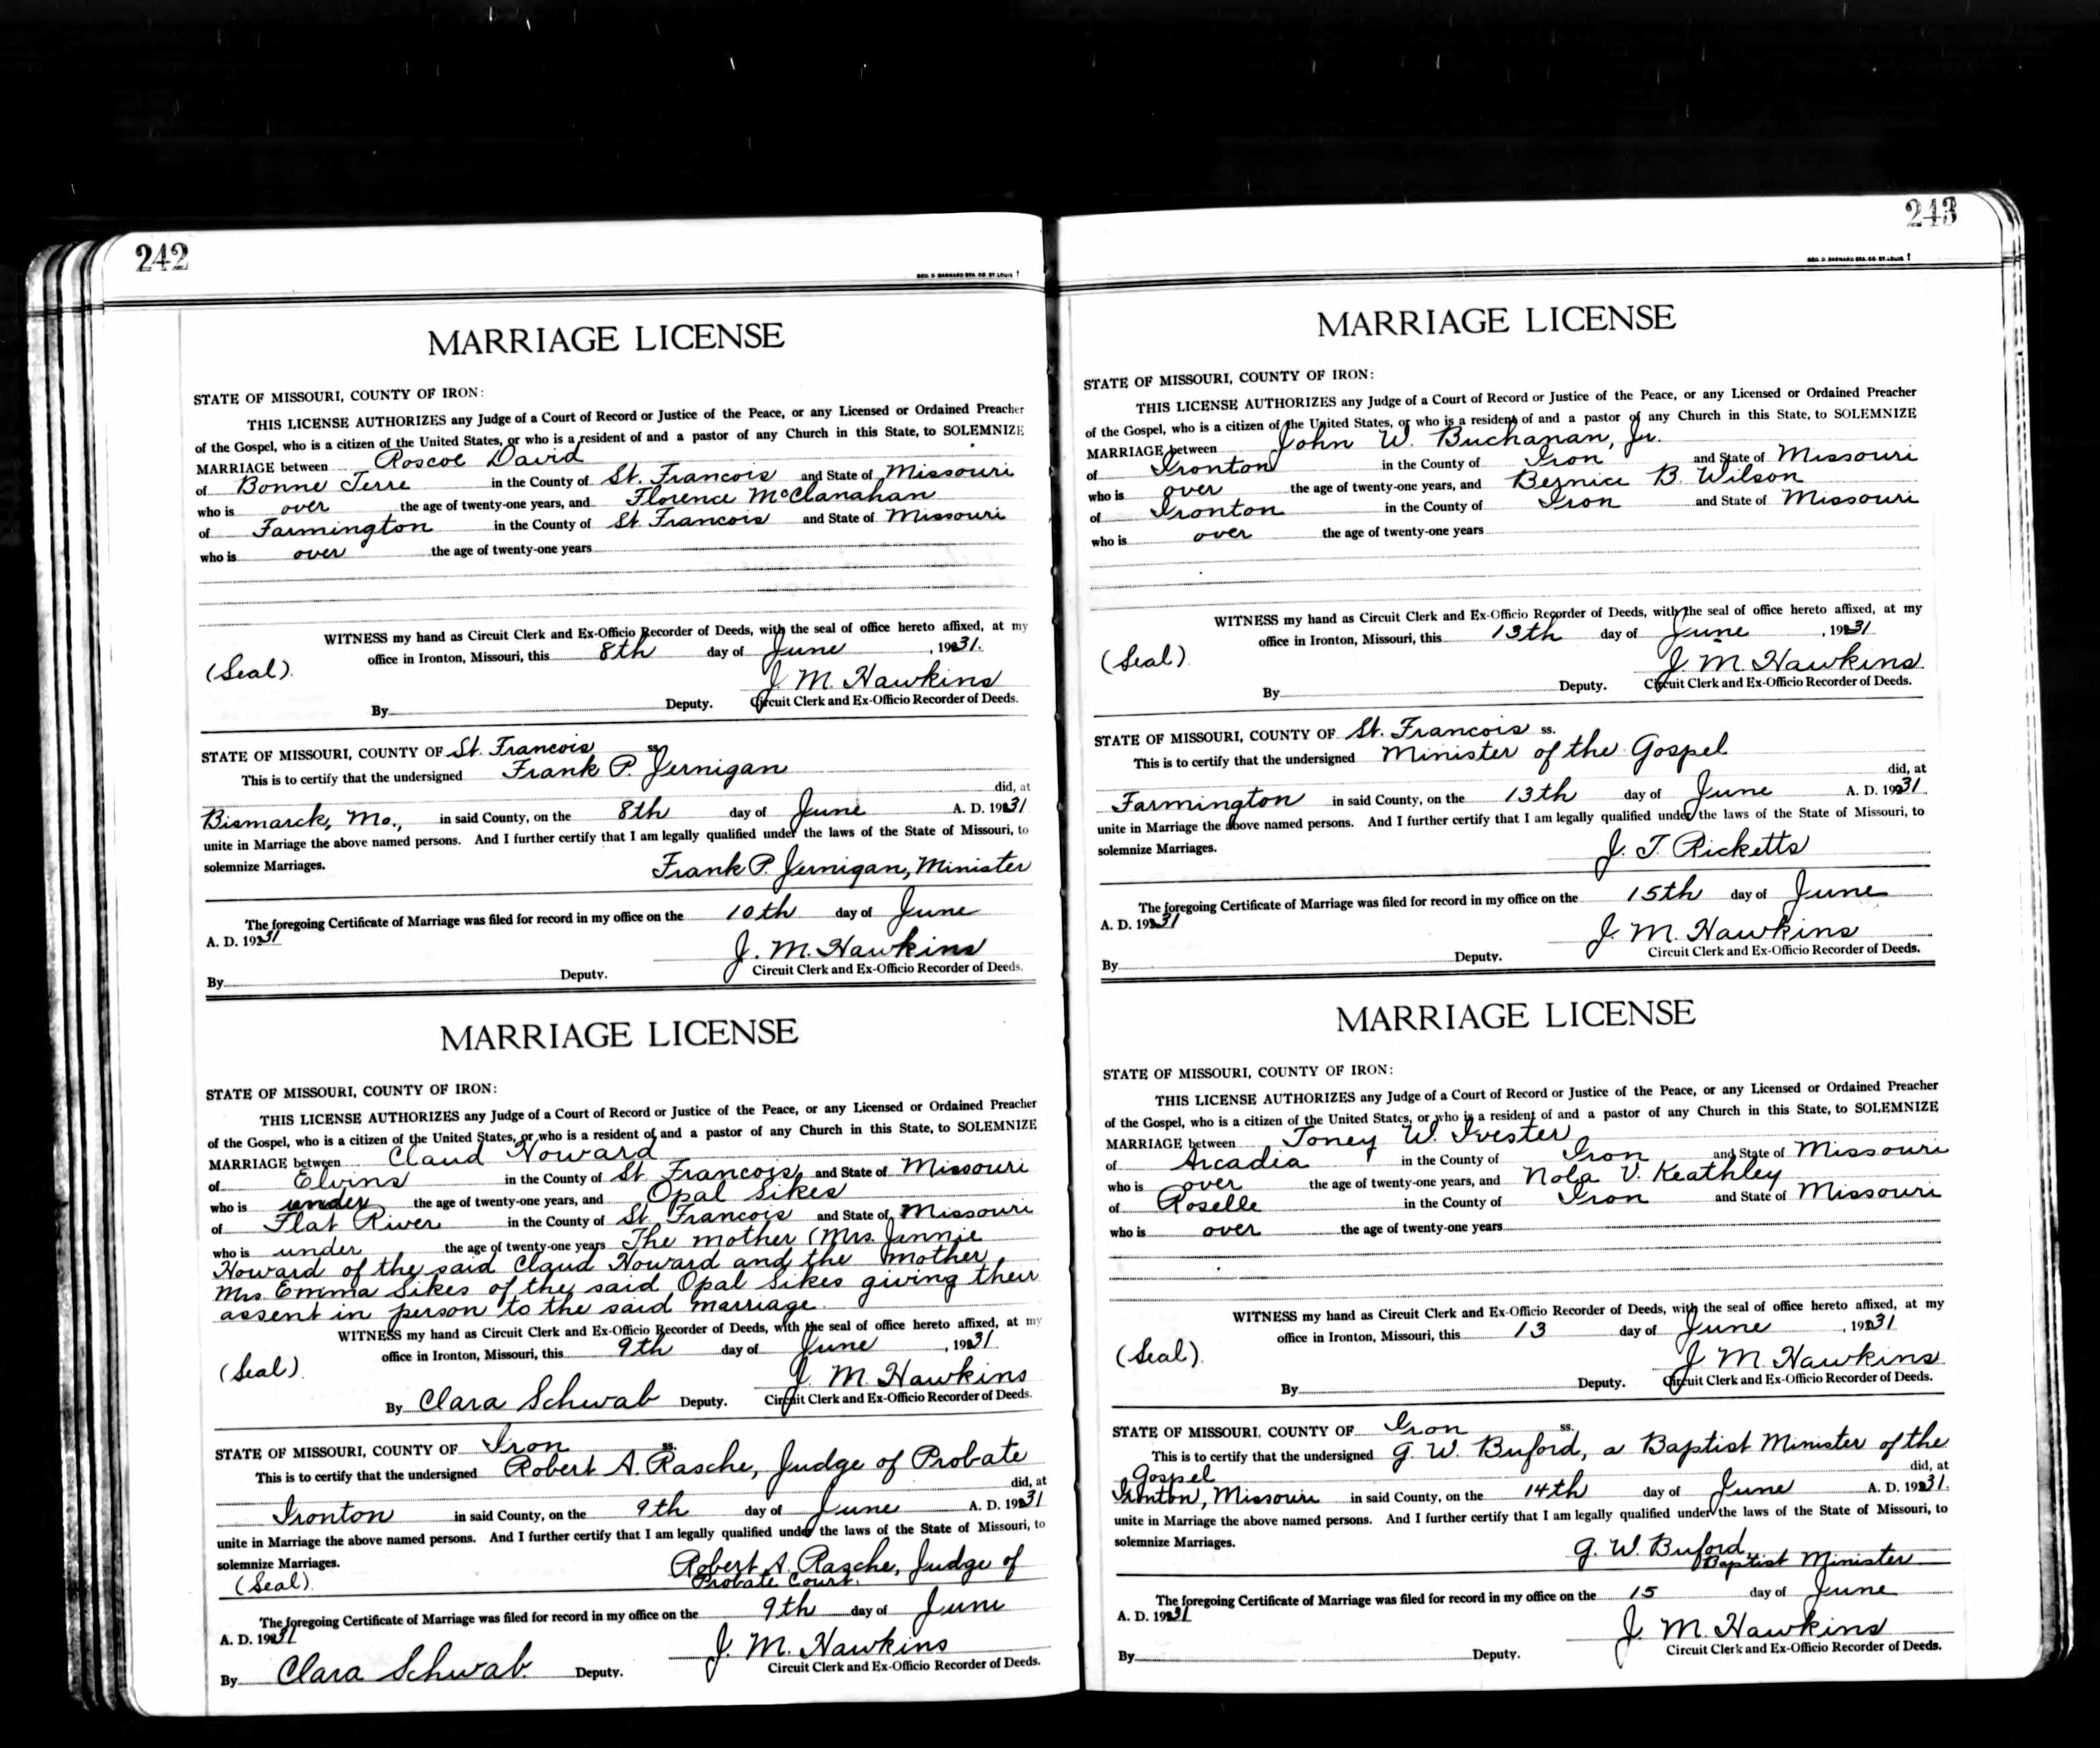 242
GEO. D. BARNARD STA. CO. ST. LOUIS
MARRIAGE LICENSE
STATE OF MISSOURI, COUNTY OF IRON:
THIS LICENSE AUTHORIZES any Judge of a Court of Record or Justice of the Peace, or any Licensed or Ordained Preacher
of the Gospel, who is a citizen of the United States, or who is a resident of and a pastor of any Church in this State, to SOLEMNIZE
MARRIAGE between Roscoe David
of Bonne Terre in the County of St. Francois and State of Missouri
who is over the age of twenty-one years, and Florence McClanahan
of Farmington in the County of St Francois and State of Missouri
who is over the age of twenty-one years
WITNESS my hand as Circuit Clerk and Ex-Officio Recorder of Deeds, with the seal of office hereto affixed, at my
office in Ironton, Missouri, this 8th day of June, 1931.
(Seal).
J. M. Hawkins
By Deputy. Circuit Clerk and Ex-Officio Recorder of Deeds.
STATE OF MISSOURI, COUNTY OF St. Francois ss.
This is to certify that the undersigned Frank P. Jernigan
did, at
Bismarck, Mo., in said County, on the 8th day of June A. D. 1931
unite in Marriage the above named persons. And I further certify that I am legally qualified under the laws of the State of Missouri, to
solemnize Marriages.
Frank P. Jernigan, Minister
The foregoing Certificate of Marriage was filed for record in my office on the 10th day of June
A. D. 1931
J. M. Hawkins
By Deputy. Circuit Clerk and Ex-Officio Recorder of Deeds.
MARRIAGE LICENSE
STATE OF MISSOURI, COUNTY OF IRON:
THIS LICENSE AUTHORIZES any Judge of a Court of Record or Justice of the Peace, or any Licensed or Ordained Preacher
of the Gospel, who is a citizen of the United States, or who is a resident of and a pastor of any Church in this State, to SOLEMNIZE
MARRIAGE between Claud Howard
of Elvins in the County of St. Francois and State of Missouri
who is under the age of twenty-one years, and Opal Sikes
of Flat River in the County of St. Francois and State of Missouri
who is under the age of twenty-one years The mother (Mrs. Jennie
Howard of the said Claud Howard and the mother
Mrs Emma Sikes of the said Opal Sikes giving their
assent in person to the said marriage
WITNESS my hand as Circuit Clerk and Ex-Officio Recorder of Deeds, with the seal of office hereto affixed, at my
office in Ironton, Missouri, this 9th day of June, 1931
(Seal).
J. M. Hawkins
By Clara Schwab Deputy. Circuit Clerk and Ex-Officio Recorder of Deeds.
STATE OF MISSOURI, COUNTY OF Iron ss.
This is to certify that the undersigned Robert A. Rasche, Judge of Probate
did, at
Ironton in said County, on the 9th day of June A. D. 1931
unite in Marriage the above named persons. And I further certify that I am legally qualified under the laws of the State of Missouri, to
solemnize Marriages.
Robert A. Rasche, Judge of
(Seal). Probate Court.
The foregoing Certificate of Marriage was filed for record in my office on the 9th day of June
A. D. 1931
J. M. Hawkins
By Clara Schwab Deputy. Circuit Clerk and Ex-Officio Recorder of Deeds.
243
GEO. D. BARNARD STA. CO. ST. LOUIS
MARRIAGE LICENSE
STATE OF MISSOURI, COUNTY OF IRON:
THIS LICENSE AUTHORIZES any Judge of a Court of Record or Justice of the Peace, or any Licensed or Ordained Preacher
of the Gospel, who is a citizen of the United States, or who is a resident of and a pastor of any Church in this State, to SOLEMNIZE
MARRIAGE between John W. Buchanan, Jr.
of Ironton in the County of Iron and State of Missouri
who is over the age of twenty-one years, and Bernice B. Wilson
of Ironton in the County of Iron and State of Missouri
who is over the age of twenty-one years
WITNESS my hand as Circuit Clerk and Ex-Officio Recorder of Deeds, with the seal of office hereto affixed, at my
office in Ironton, Missouri, this 13th day of June, 1931
(Seal).
J. M. Hawkins
By Deputy. Circuit Clerk and Ex-Officio Recorder of Deeds.
STATE OF MISSOURI, COUNTY OF St. Francois ss.
This is to certify that the undersigned Minister of the Gospel
did, at
Farmington in said County, on the 13th day of June A. D. 1931
unite in Marriage the above named persons. And I further certify that I am legally qualified under the laws of the State of Missouri, to
solemnize Marriages.
J. T. Ricketts
The foregoing Certificate of Marriage was filed for record in my office on the 15th day of June
A. D. 1931
J. M. Hawkins
By Deputy. Circuit Clerk and Ex-Officio Recorder of Deeds.
MARRIAGE LICENSE
STATE OF MISSOURI, COUNTY OF IRON:
THIS LICENSE AUTHORIZES any Judge of a Court of Record or Justice of the Peace, or any Licensed or Ordained Preacher
of the Gospel, who is a citizen of the United States, or who is a resident of and a pastor of any Church in this State, to SOLEMNIZE
MARRIAGE between Toney W. Ivester
of Arcadia in the County of Iron and State of Missouri
who is over the age of twenty-one years, and Nola V. Keathley
of Roselle in the County of Iron and State of Missouri
who is over the age of twenty-one years
WITNESS my hand as Circuit Clerk and Ex-Officio Recorder of Deeds, with the seal of office hereto affixed, at my
office in Ironton, Missouri, this 13 day of June, 1931
(Seal).
J. M. Hawkins
By Deputy. Circuit Clerk and Ex-Officio Recorder of Deeds.
STATE OF MISSOURI, COUNTY OF Iron ss.
This is to certify that the undersigned G. W. Buford, a Baptist Minister of the
Gospel did, at
Ironton, Missouri in said County, on the 14th day of June A. D. 1931.
unite in Marriage the above named persons. And I further certify that I am legally qualified under the laws of the State of Missouri, to
solemnize Marriages.
G. W. Buford,
Baptist Minister
The foregoing Certificate of Marriage was filed for record in my office on the 15 day of June
A. D. 1931
J. M. Hawkins
By Deputy. Circuit Clerk and Ex-Officio Recorder of Deeds.